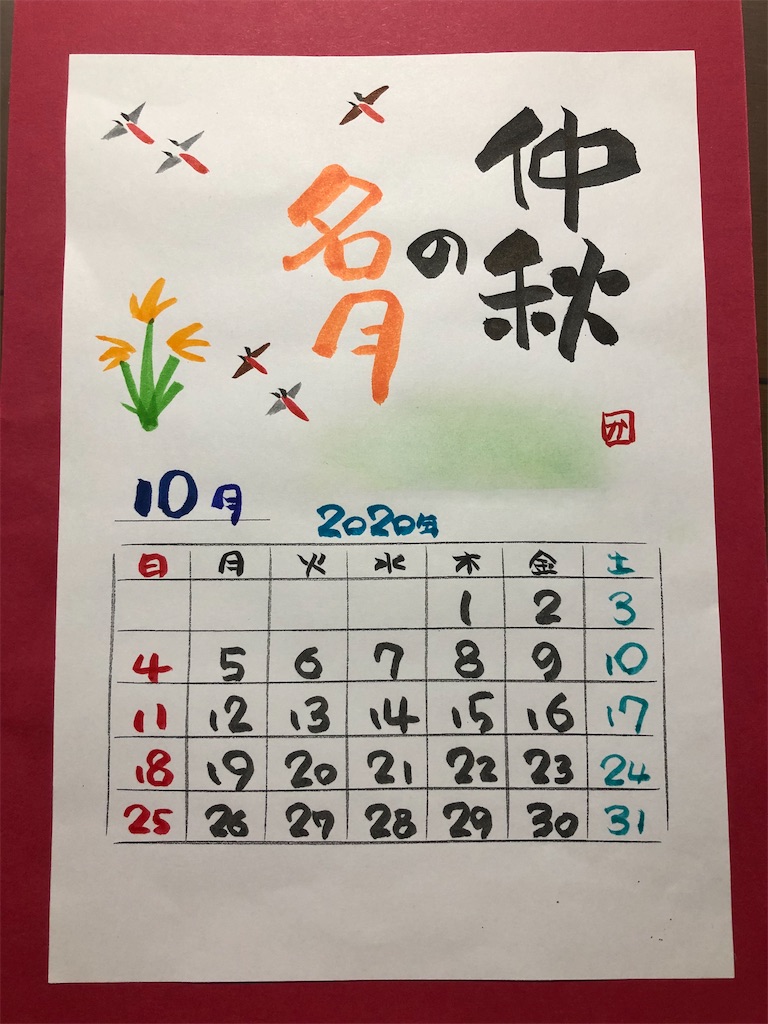 仲秋
の
名月
か
10月
2020年
日 月 火 水 木 金 土
1 2 3
4 5 6 7 8 9 10
11 12 13 14 15 16 17
18 19 20 21 22 23 24
25 26 27 28 29 30 31